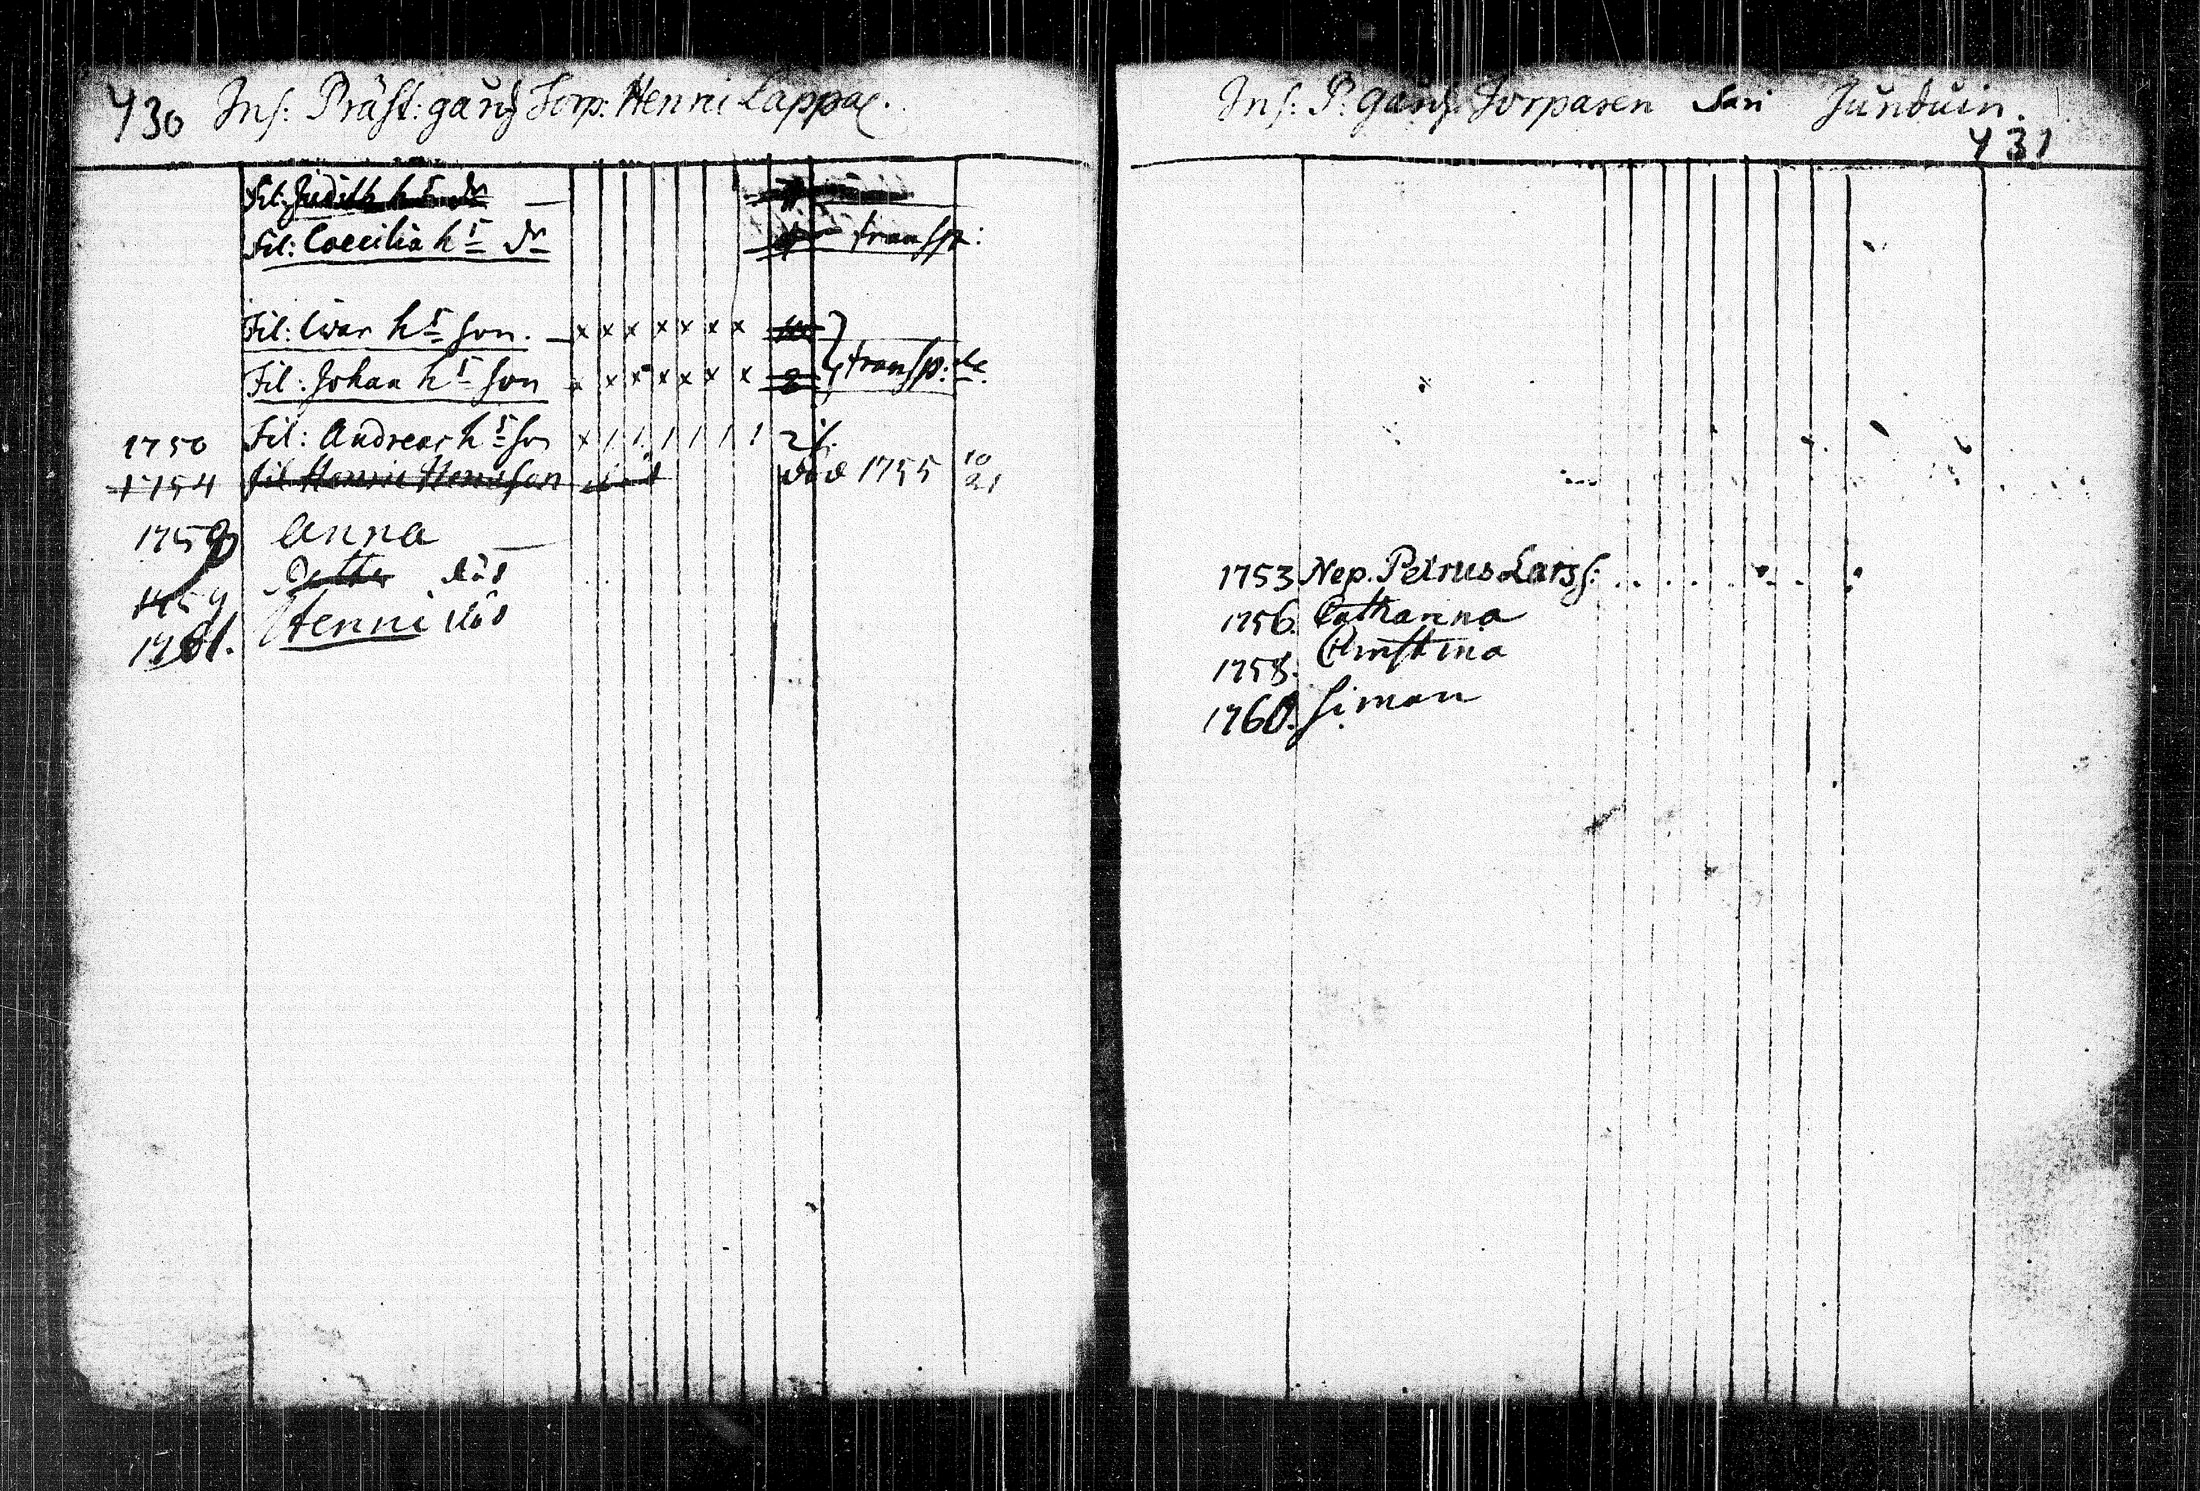 430 Ins. Präst: gårdz Torp: Henrri Lappal.
Fil: Judith hs dr
Fil: Coecilia hs dr transp:
Fil: Iwar hs son. x x x x x x x
Fil: Johan hs son x x x x x x x 8 transp: de
1750 Fil: Andreas hs son x / / / / / / 2
1754 fil Henric Henrisson död död 1755 10 21
1758 Anna
1759 död
1761. Henric död
Ins: P: gårdz Torparen Sari Junduin.
431
1753 Nep. Petrus Larss:
1756. Catharina
1758. Christina
1760. Simon